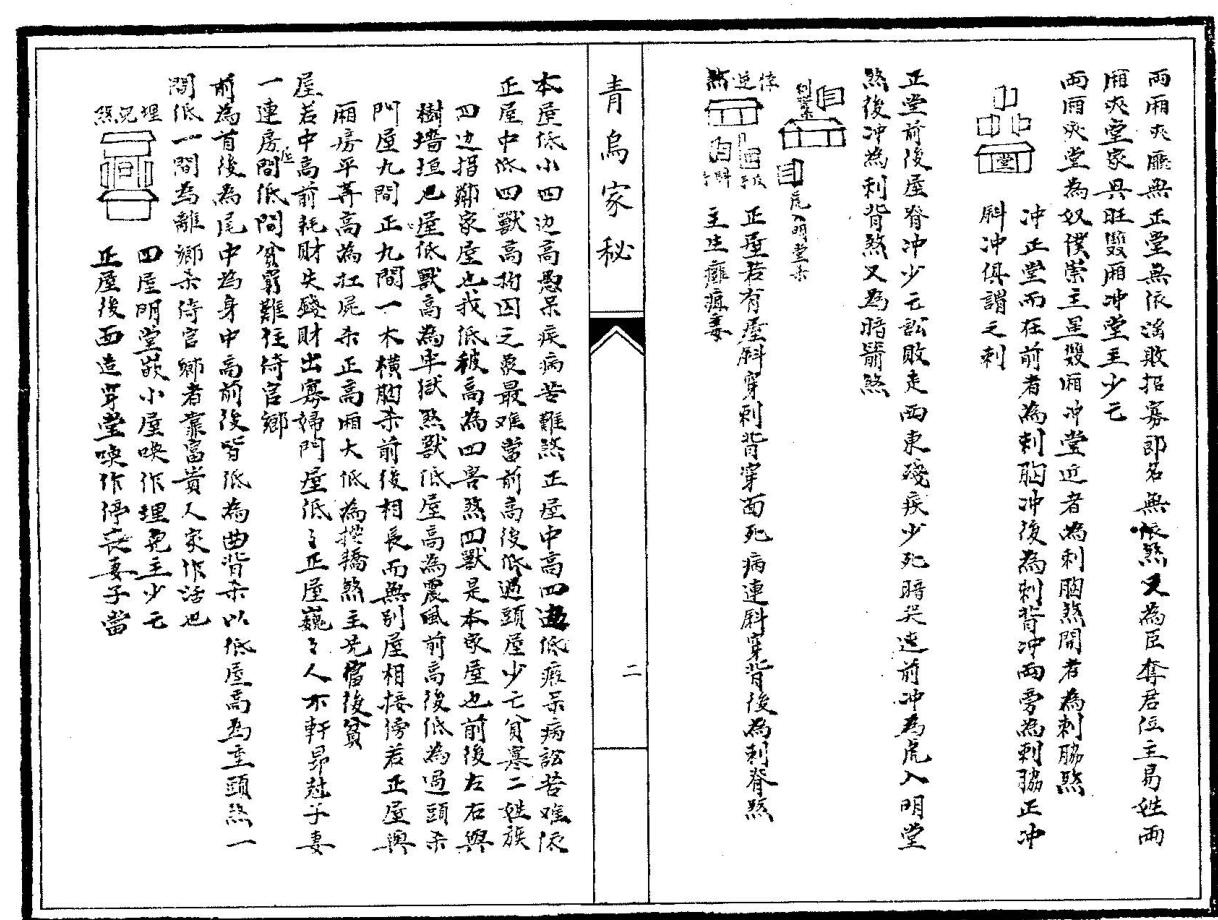 兩廂夾廳無正堂無依滛敗招寡郎名無依煞又為臣奪君位主易姓兩
廂夾堂家具旺毀廂冲堂主少亡
兩廂夾堂為奴僕崇主星毀廂冲堂近者為刺胸煞開者為刺脇煞
冲正堂而在前者為刺胸冲後為刺背冲兩旁為刺脇正冲
斜冲俱謂之刺
堂
正堂前後屋脊冲少亡訟敗走西東殘疾少死暗哭連前冲為虎入明堂
煞後冲為刺背煞又為暗箭煞
刺背煞
虎入明堂煞
悖逆煞
正屋若有屋斜穿刺背穿面死病連斜穿背後為刺脊煞
主生癱瘋毒
青烏家秘
二
本屋低小四边高愚呆疾病苦難煞正屋中高四边低瘟呆病訟苦难依
正屋中低四獸高拘囚之象最难當前高後低過頭屋少亡貧寒二姓族
四边指鄰家屋也我低彼高為四害煞四獸是本家屋也前後左右與
樹墙垣也屋低獸高為牢獄煞獸低屋高為震風前高後低為過頭杀
門屋九間正九間一木橫胸杀前後相長而無別屋相接傍若正屋與
廂房平等高為扛屍杀正高廂大低為撐轎煞主先富後貧
屋若中高前耗財失盜財出寡婦門屋低々正屋巍々人不軒昂尅子妻
一連房屋間低間貧窮難住倚官鄉
前為首後為尾中為身中高前後皆低為曲背杀以低屋高為垂頭煞一
間低一間為離鄉杀倚官鄉者靠富貴人家作活也
埋兒煞
四屋明堂嵌小屋喚作埋兒主少亡
正屋後面造穿堂喚作停喪妻子當